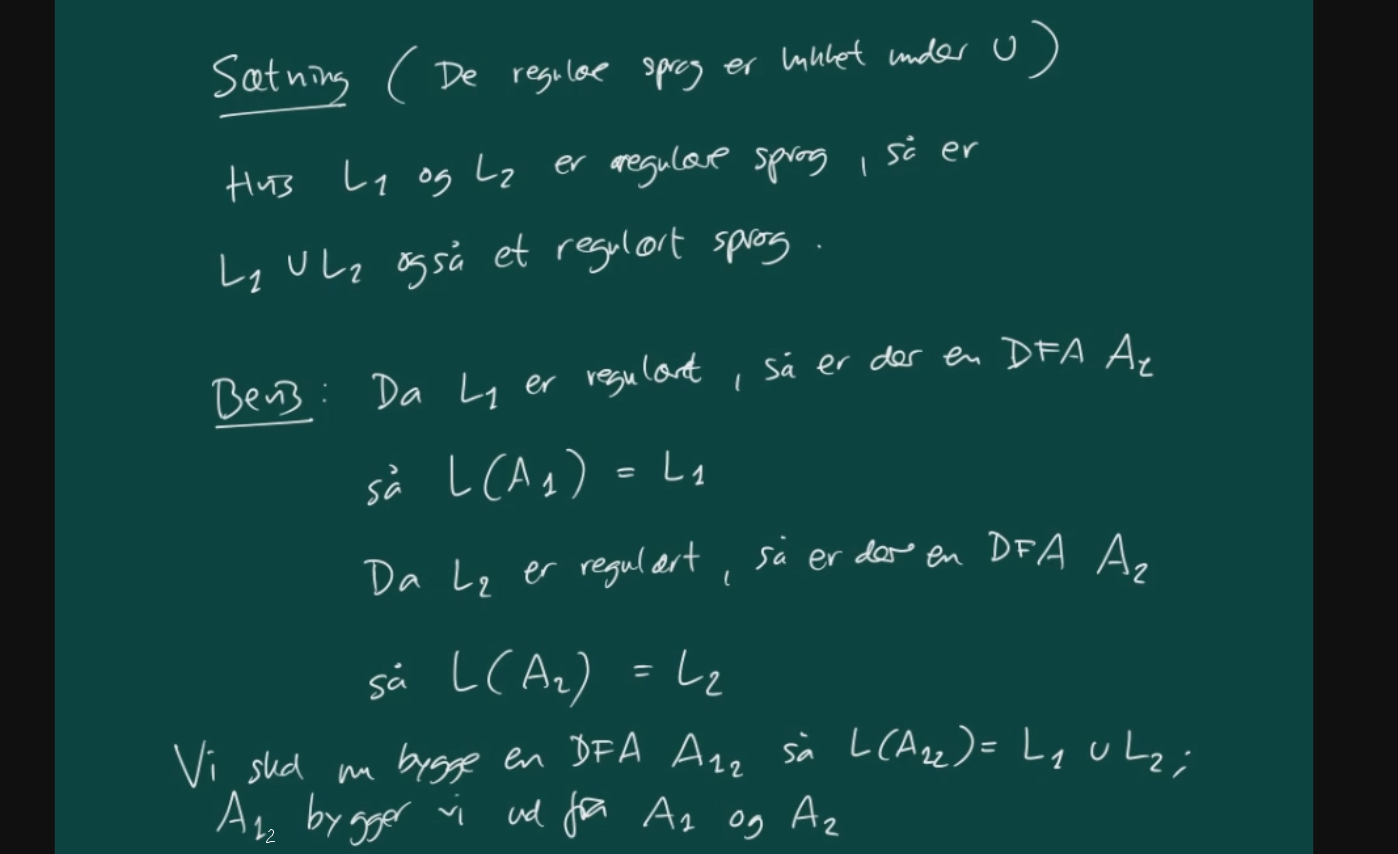 Sætning (De regulære sprog er lukket under ∪)
Hvis L1 og L2 er regulære sprog, så er
L1 ∪ L2 også et regulært sprog.
Bevis: Da L1 er regulært, så er der en DFA A1
så L(A1) = L1
Da L2 er regulært, så er der en DFA A2
så L(A2) = L2
Vi skal nu bygge en DFA A12 så L(A12) = L1 ∪ L2;
A12 bygger vi ud fra A1 og A2